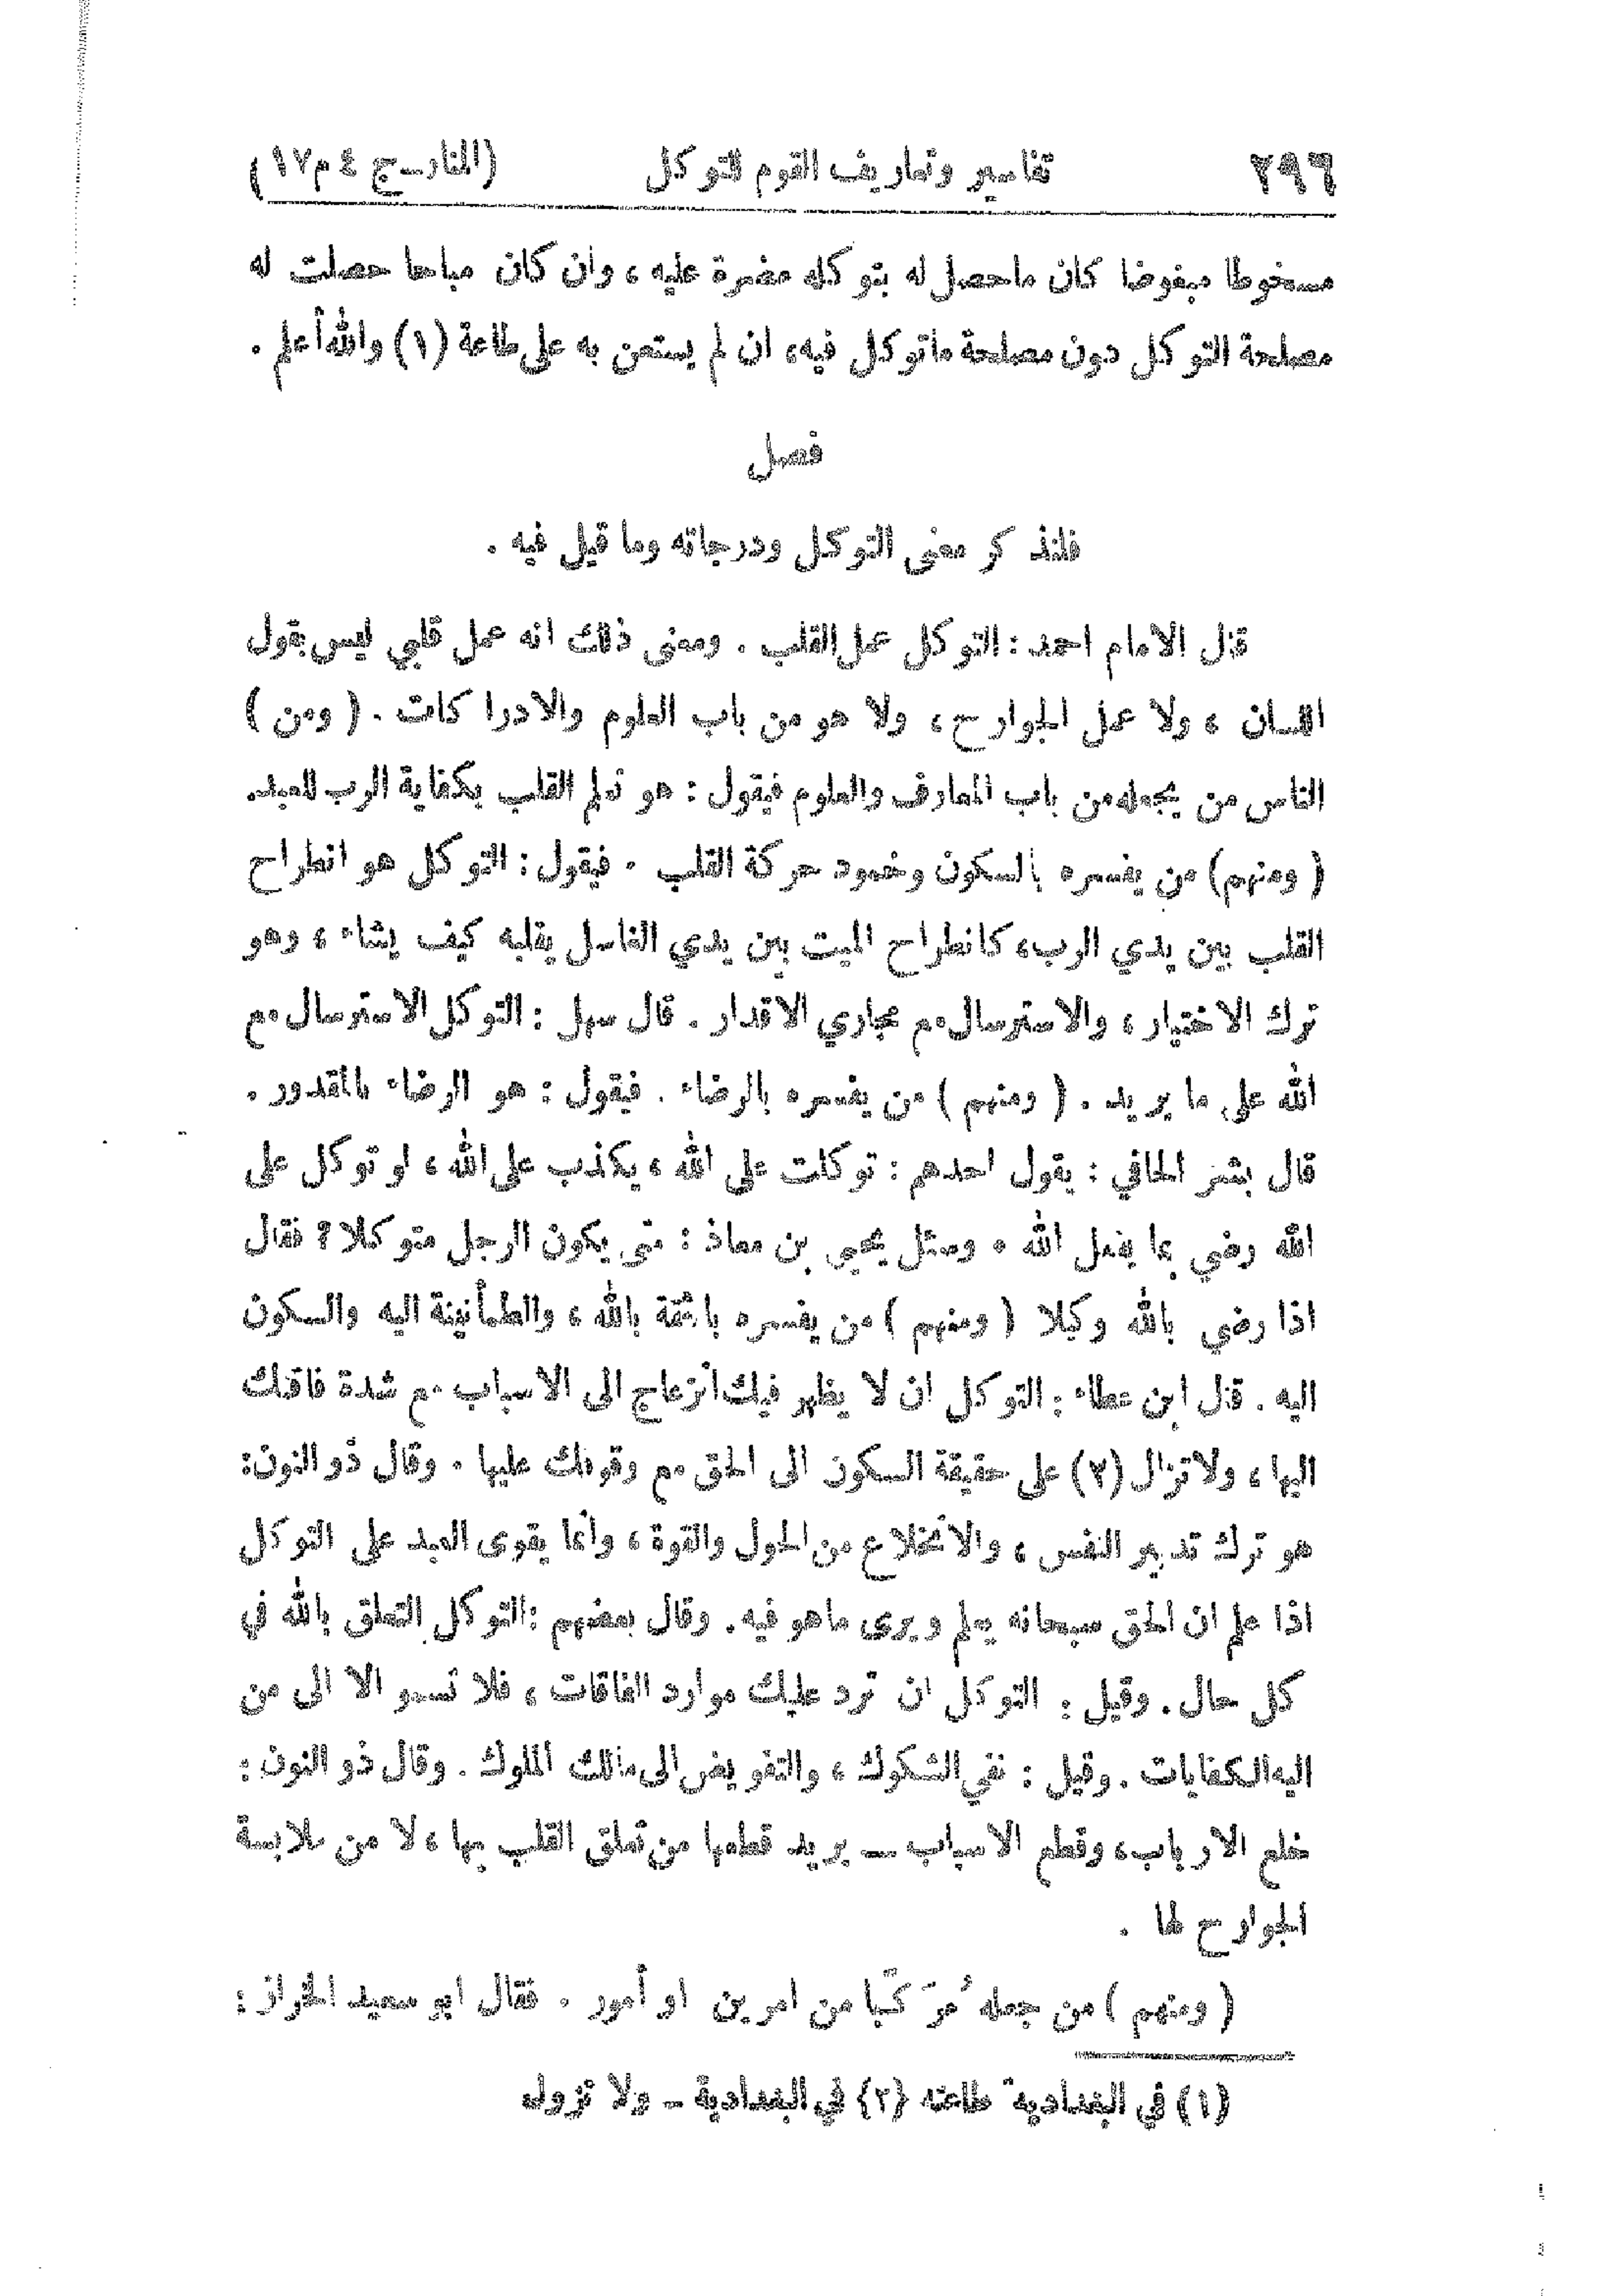 ٢٩٦ تفاسير وتعاريف القوم للتوكل (المنار ـ ج ٤ م ١٧)
مسخوطا مبغوضا كان ماحصل له بتوكله مضرة عليه ، وان كان مباحا حصلت له
مصلحة التوكل دون مصلحة ماتوكل فيه، ان لم يستعن به على طاعة (١) والله أعلم .
فصل
فلنذكر معنى التوكل ودرجاته وما قيل فيه .
قال الامام احمد : التوكل عمل القلب . ومعنى ذلك انه عمل قلبي ليس بقول
اللسان ، ولا عمل الجوارح ، ولا هو من باب العلوم والادراكات . ( ومن )
الناس من يجعله من باب المعارف والعلوم فيقول : هو علم القلب بكفاية الرب للعبد.
( ومنهم) من يفسره بالسكون وخمود حركة القلب . فيقول : التوكل هو انطراح
القلب بين يدي الرب، كانطراح الميت بين يدي الغاسل يقلبه كيف يشاء ، وهو
ترك الاختيار ، والاسترسال مع مجاري الاقدار . قال سهل : التوكل الاسترسال مع
الله على ما يريد . ( ومنهم ) من يفسره بالرضاء . فيقول : هو الرضاء بالمقدور .
قال بشر الحافي : يقول احدهم : توكلت على الله ، يكذب على الله ، لو توكل على
الله رضي بما يفعل الله . وسئل يحيى بن معاذ : متى يكون الرجل متوكلا ؟ فقال
اذا رضي بالله وكيلا ( ومنهم ) من يفسره بالثقة بالله ، والطمأنينة اليه والسكون
اليه . قال ابن عطاء : التوكل ان لا يظهر فيك انزعاج الى الاسباب مع شدة فاقتك
اليها ، ولا تزال (٢) على حقيقة السكون الى الحق مع وقوفك عليها . وقال ذو النون:
هو ترك تدبير النفس ، والانخلاع من الحول والقوة ، وانما يقوى العبد على التوكل
اذا علم ان الحق سبحانه يعلم ويرى ماهو فيه. وقال بعضهم : التوكل التعلق بالله في
كل حال . وقيل : التوكل ان ترد عليك موارد الفاقات ، فلا تسمو الا الى من
اليه الكفايات . وقيل : نفي الشكوك ، والتفويض الى مالك الملوك . وقال ذو النون :
خلع الارباب، وقطع الاسباب ـ يريد قطعها من تعلق القلب بها ، لا من ملابسة
الجوارح لها .
( ومنهم ) من جعله مُرَكَّبا من امرين او أمور . فقال ابو سعيد الخراز :
(١) في البغدادية طاعته (٢) في البغدادية ـ ولا تزول